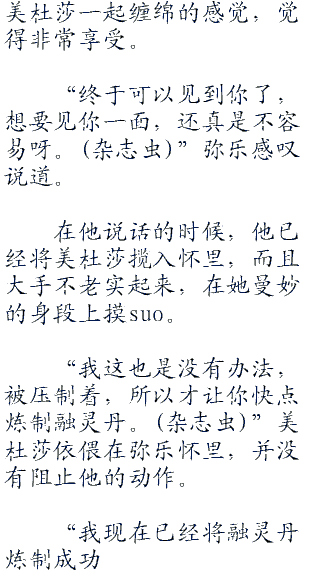 美杜莎一起缠绵的感觉，觉
得非常享受。
“终于可以见到你了，
想要见你一面，还真是不容
易呀。(杂志虫)”弥乐感叹
说道。
在他说话的时候，他已
经将美杜莎揽入怀里，而且
大手不老实起来，在她曼妙
的身段上摸suo。
“我这也是没有办法，
被压制着，所以才让你快点
炼制融灵丹。(杂志虫)”美
杜莎依偎在弥乐怀里，并没
有阻止他的动作。
“我现在已经将融灵丹
炼制成功